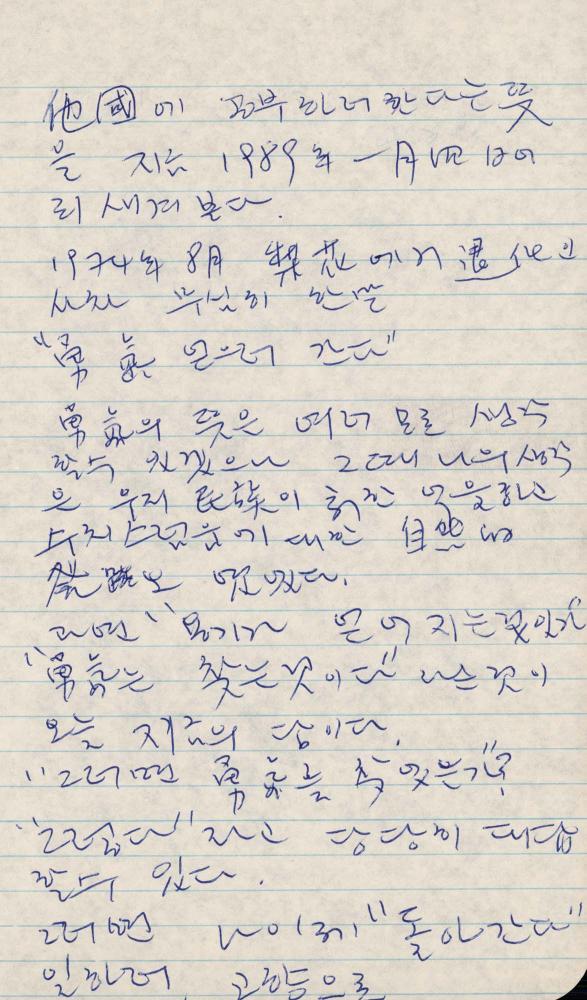 他國에 공부하러 한다는 뜻
을 지금 1989年 一月 四日에
되새겨 본다.
1974年 8月 梨花에서 退社인
사차 무심히 한말
"勇氣 얻으러 간다"
勇氣의 뜻은 여러모로 생각
할수 있겠으나 그때 나의 생각
은 우리 民族이 취한 억울하고
수치스러움에 대한 自然的
發露로 였었다.
과연 "용기가 얻어 지는것인가"
"勇氣는 찾는것이다" 라는것이
오늘 지금의 답이다.
"그러면 勇氣를 찾았는가"?
"그렇다"라고 당당히 대답
할수 있다.
그러면 나 이제 "돌아간다"
일하러 고향으로